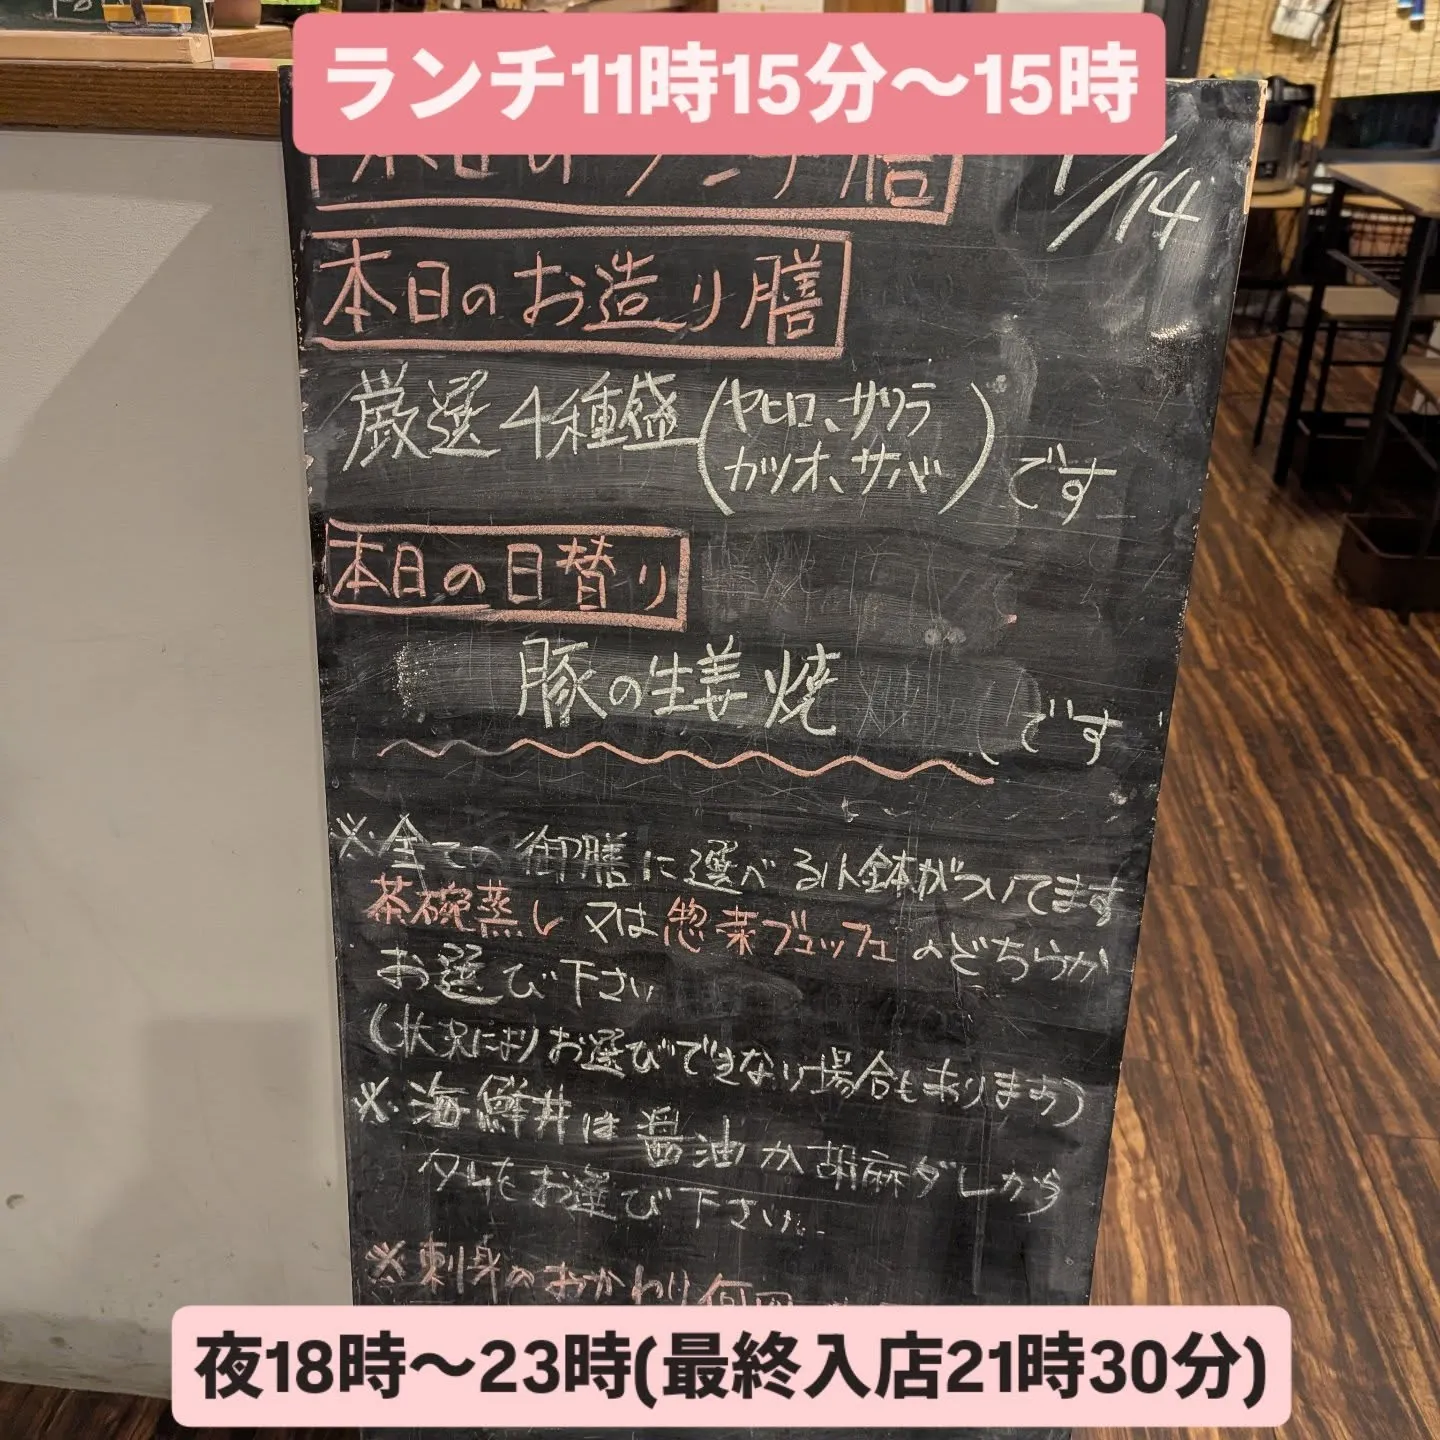 ランチ11時15分～15時
本日のランチ膳
1/14
本日のお造り膳
厳選4種盛(ヤヒロ、サワラ
カツオ、サバ)です
本日の日替り
豚の生姜焼
です
※全ての御膳に選べる小鉢がついてます
茶碗蒸し又は惣菜ブュッフェのどちらか
お選び下さい
(状況によりお選びできない場合もあります)
※海鮮丼は醤油か胡麻ダレから
タレをお選び下さい
※刺身のおかわり何回
夜18時～23時(最終入店21時30分)